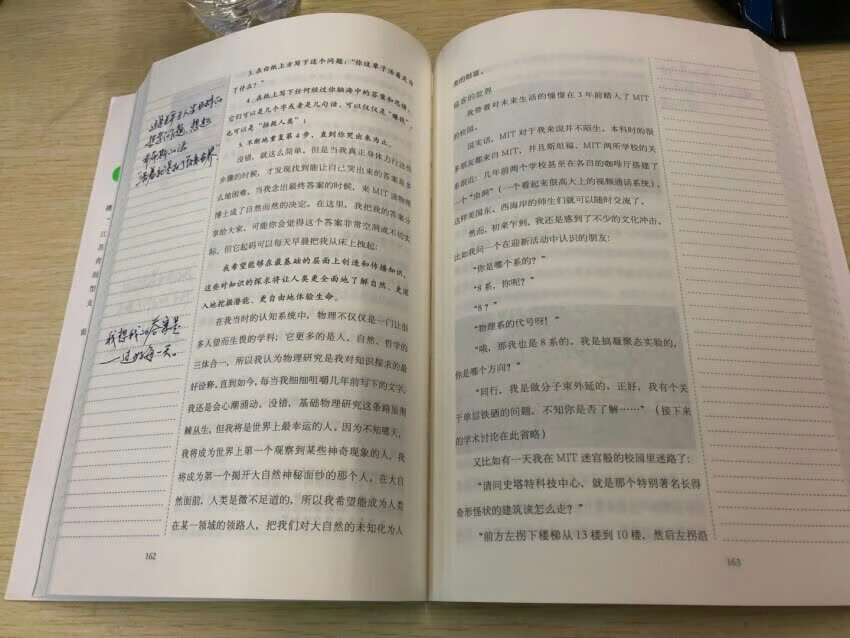 3. 在白纸上方写下这个问题：“你这辈子活着是为
了什么？”
4. 在纸上写下任何经过你脑海中的答案和思绪，
它们可以是几个字或者是几句话，可以仅仅是“赚钱”，
也可以是“拯救人类”；
5. 不断地重复第 4 步，直到你哭出来为止。
没错，就这么简单。但是当我真正身体力行这些
步骤的时候，才发现找到能让自己哭出来的答案是多
么地困难。当我念出最终答案的时候，来 MIT 读物理
博士成了自然而然的决定。在这里，我把我的答案分
享给大家。可能你会觉得这个答案非常空洞或不切实
际，但它起码可以每天早晨把我从床上拽起：
我希望能够在最基础的层面上创造和传播知识，
这些对知识的探求将让人类更全面地了解自然、更深
入地挖掘潜能、更自由地体验生命。
在我当时的认知系统中，物理不仅仅是一门让很
多人望而生畏的学科；它更多的是人、自然、哲学的
三体合一，所以我认为物理研究是我对知识探求的最
好诠释。直到如今，每当我细细咀嚼几年前写下的文字，
我还是会心潮涌动。没错，基础物理研究这条路虽荆
棘丛生，但我将是世界上最幸运的人。因为不知哪天，
我将成为世界上第一个观察到某些神奇现象的人，我
将成为第一个揭开大自然神秘面纱的那个人。在大自
然面前，人类是微不足道的，所以我希望能成为人类
在某一领域的领路人，把我们对大自然的未知化为人
162
我想我的答案是
过好每一天。
类的财富。
极客的世界
我带着对未来生活的憧憬在 3 年前踏入了 MIT
的校园。
说实话，MIT 对于我来说并不陌生，本科时的很
多朋友都来自 MIT，并且斯坦福、MIT 两所学校的关
系很近：几年前两个学校甚至在各自的咖啡厅搭建了
一个“虫洞”（一个看起来很高大上的视频通话系统），
这样美国东、西海岸的师生们就可以随时交流了。
然而，初来乍到，我还是感到了不少的文化冲击。
比如我问一个在迎新活动中认识的朋友：
“你是哪个系的？”
“8 系，你呢？”
“8？”
“物理系的代号呀！”
“哦，那我也是 8 系的。我是搞凝聚态实验的，
你是哪个方向？”
“同行，我是做分子束外延的。正好，我有个关
于单层铁硒的问题，不知你是否了解……”（接下来
的学术讨论在此省略）
又比如有一天我在 MIT 迷宫般的校园里迷路了：
“请问史塔特科技中心、就是那个特别著名长得
奇形怪状的建筑该怎么走？”
“前方左拐下楼梯从 13 楼到 10 楼，然后左拐沿
163